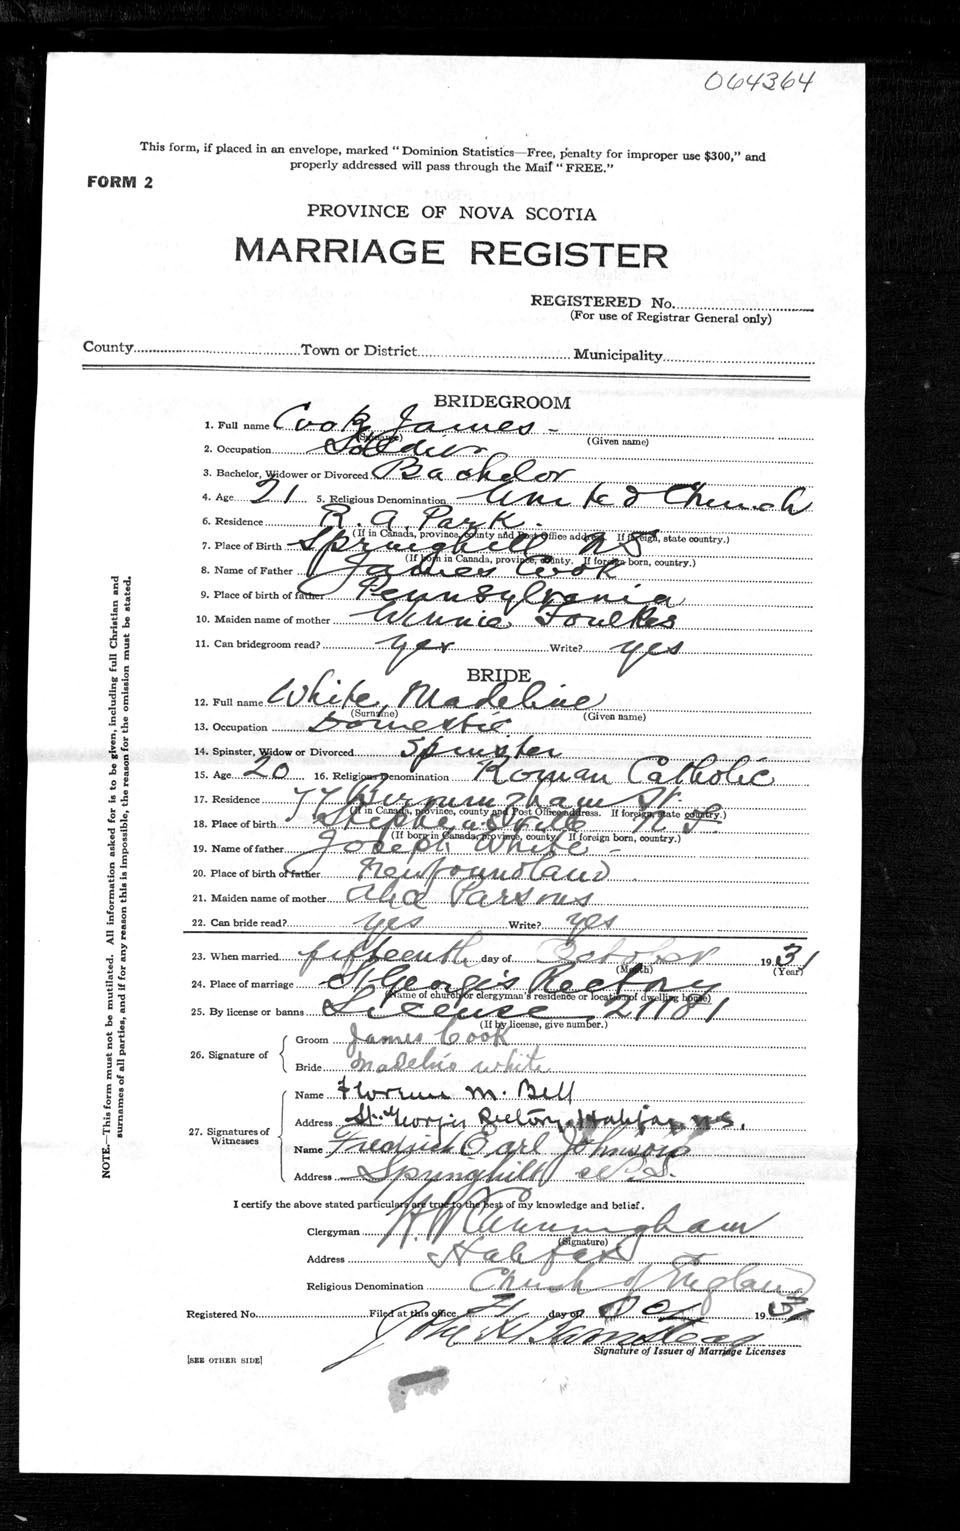 064364
This form, if placed in an envelope, marked "Dominion Statistics—Free, penalty for improper use $300," and
properly addressed will pass through the Mail "FREE."
FORM 2
PROVINCE OF NOVA SCOTIA
MARRIAGE REGISTER
REGISTERED No.
(For use of Registrar General only)
County Town or District Municipality
BRIDEGROOM
1. Full name Cook James
(Surname) (Given name)
2. Occupation Soldier
3. Bachelor, Widower or Divorced Bachelor
4. Age 21 5. Religious Denomination United Church
6. Residence R. A. Park.
(If in Canada, province, county and Post Office address. If foreign, state country.)
7. Place of Birth Springhill NS
(If born in Canada, province, county. If foreign born, country.)
8. Name of Father James Cook
9. Place of birth of father Pennsylvania
10. Maiden name of mother Winnie Foulkes
11. Can bridegroom read? yes Write? yes
BRIDE
12. Full name White, Madeline
(Surname) (Given name)
13. Occupation Domestic
14. Spinster, Widow or Divorced Spinster
15. Age 20 16. Religious Denomination Roman Catholic
17. Residence St.
(If in Canada, province, county and Post Office address. If foreign, state country.)
18. Place of birth N S
(If born in Canada, province, county. If foreign born, country.)
19. Name of father Joseph White
20. Place of birth of father Newfoundland
21. Maiden name of mother Parsons
22. Can bride read? yes Write? yes
23. When married fifteenth day of October 1931
(Month) (Year)
24. Place of marriage St. George's Rectory
(Name of church or clergyman's residence or location of dwelling house)
25. By license or banns License
(If by license, give number.)
26. Signature of Groom James Cook
Bride Madeline White
27. Signatures of Witnesses
Name Florence M. Bell
Address St. George's Rectory, Halifax, N.S.
Name Fredrick Earl Johnson
Address Springhill N.S.
I certify the above stated particulars are true to the best of my knowledge and belief.
Clergyman H. W. Cunningham
(Signature)
Address Halifax
Religious Denomination Church of England
Registered No. Filed at this office day of Oct 1931
Signature of Issuer of Marriage Licenses
[SEE OTHER SIDE]
NOTE.—This form must not be mutilated. All information asked for is to be given, including full Christian and
surnames of all parties, and if for any reason this is impossible, the reason for the omission must be stated.